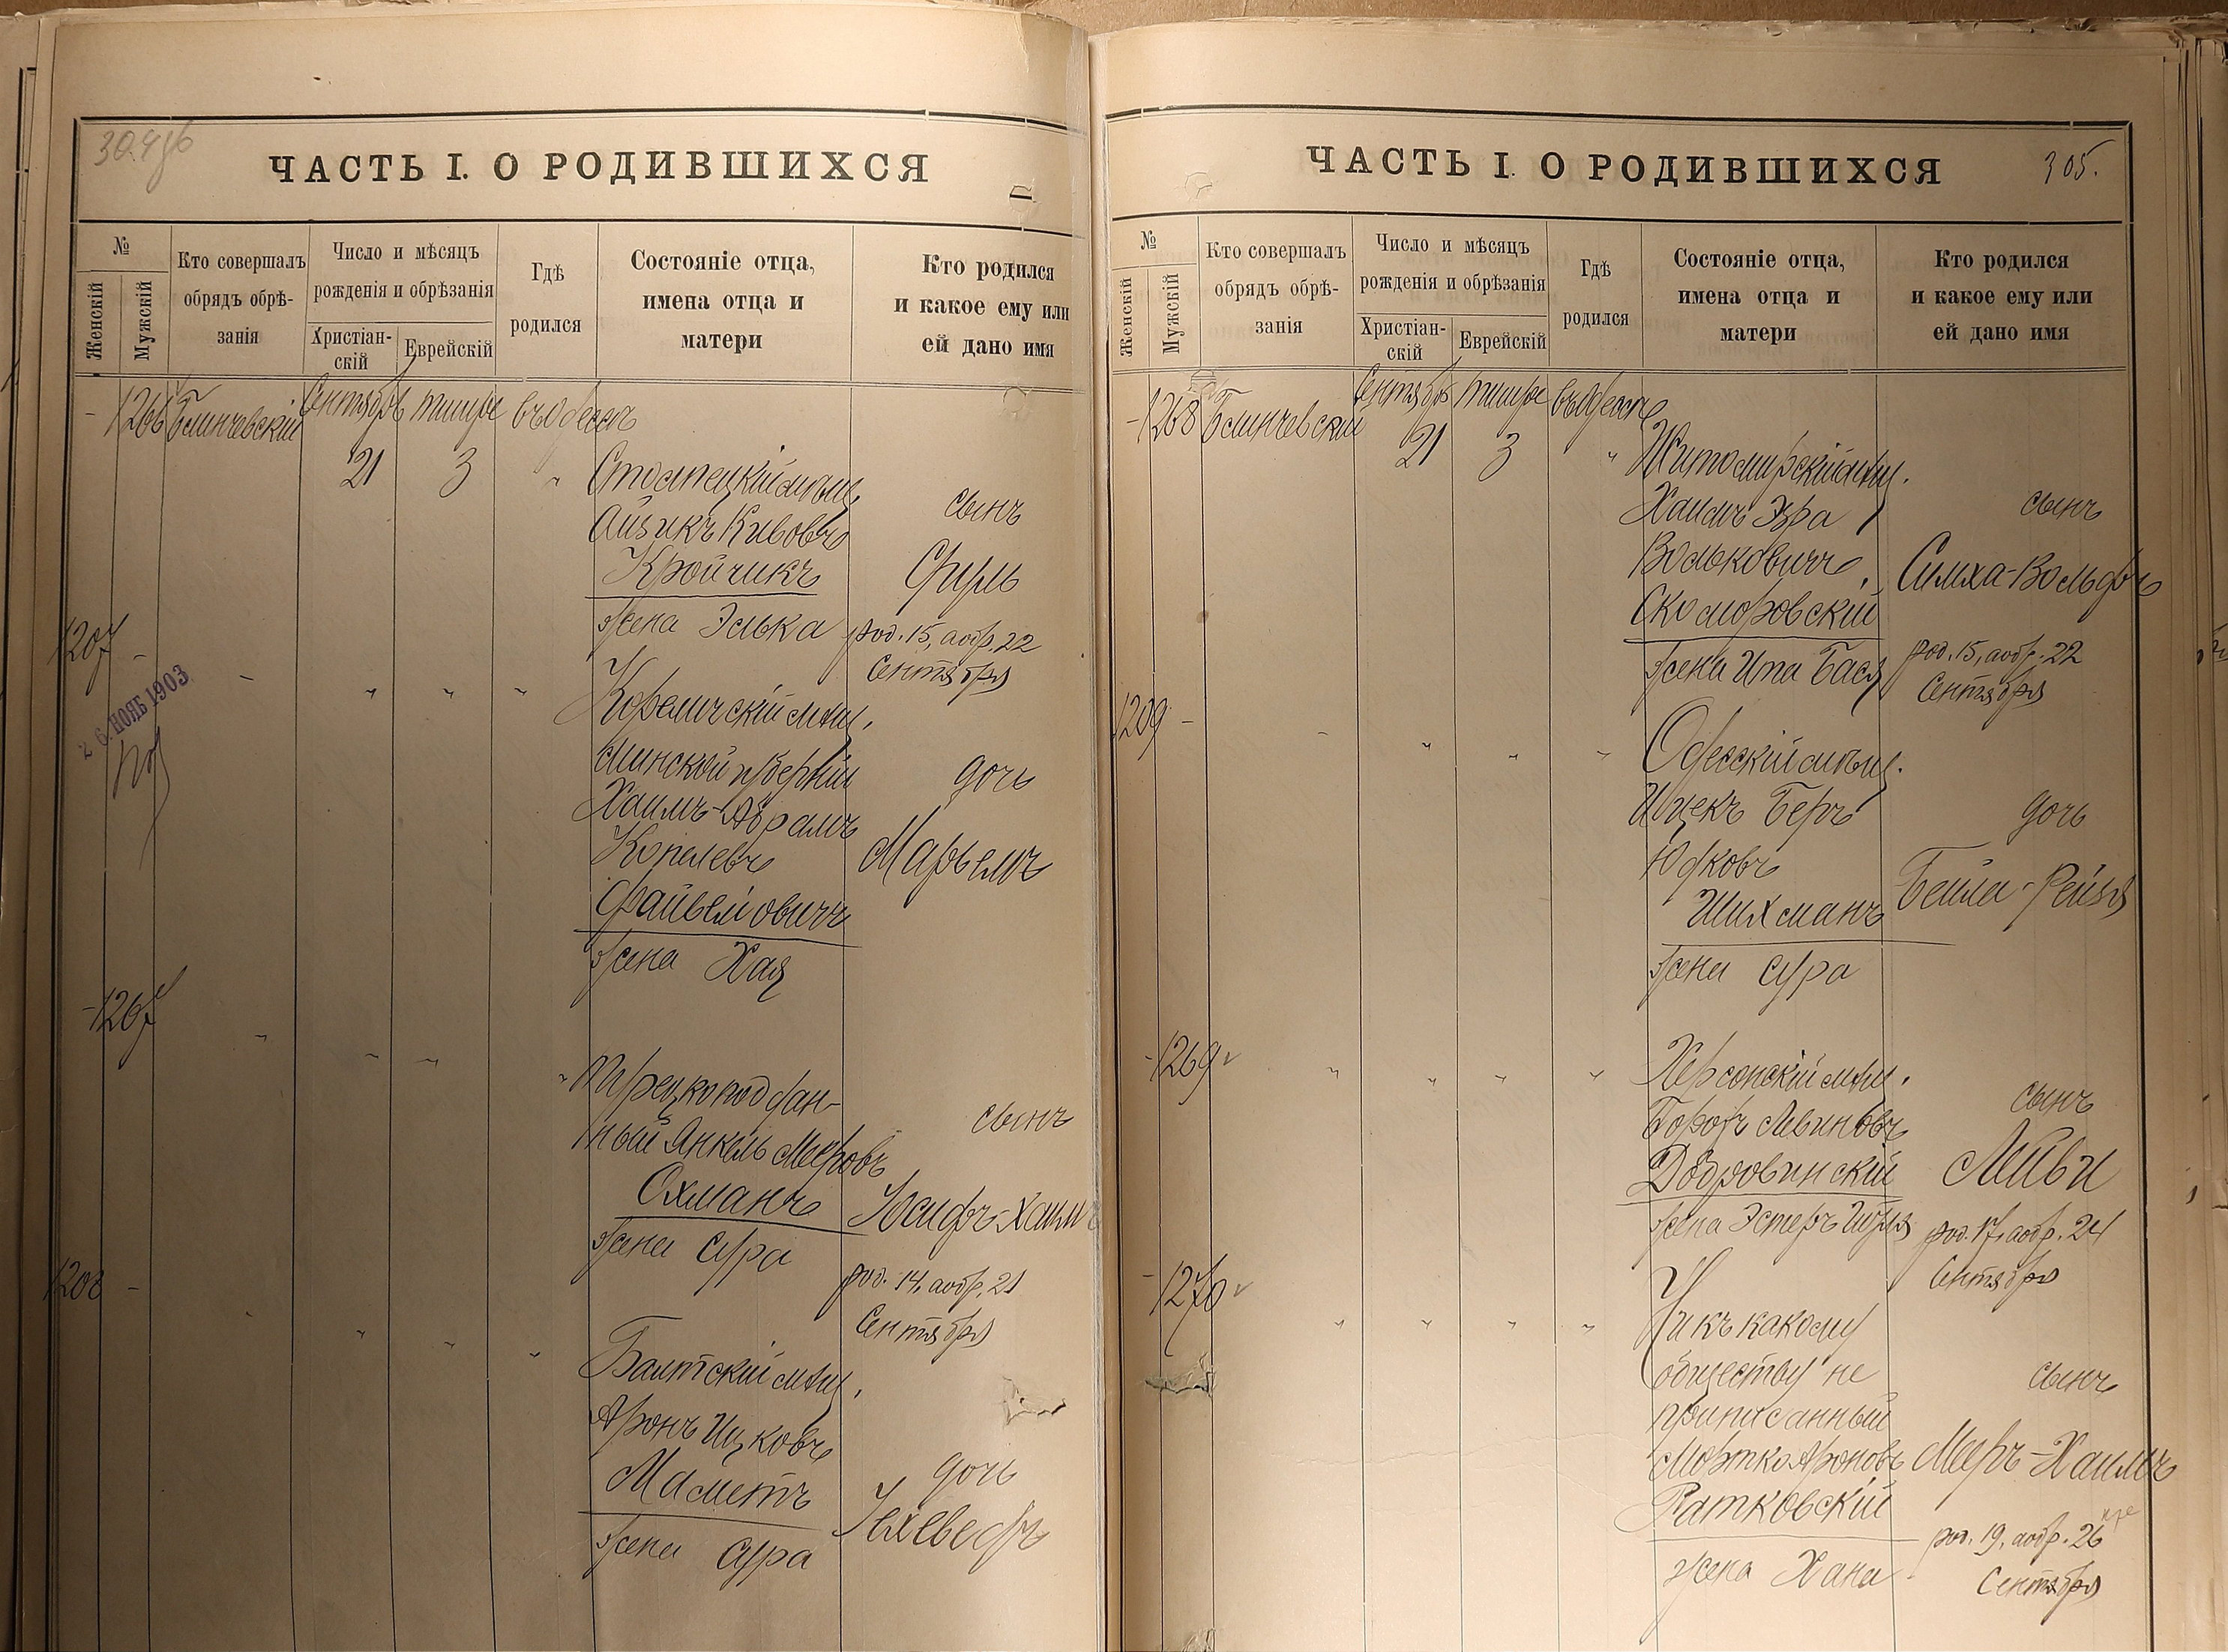 30.4фб
ЧАСТЬ I. О РОДИВШИХСЯ
№
Женскій
Мужскій
Кто совершалъ
обрядъ обрѣ-
занія
Число и мѣсяцъ
рожденія и обрѣзанія
Христіан-
скій
Еврейскій
Гдѣ
родился
Состояніе отца,
имена отца и
матери
Кто родился
и какое ему или
ей дано имя
- 1266 Блинчевскій Сентябрь тишре въ Одессѣ
21 3 "
Стоапецкій мѣщ.
Айзикъ Кивовъ
Кройчикъ
жена Элька
сынъ
Сруль
род. 15, аобр. 22
Сентября
1207 -
26. НОЯБ 1903
Кореличскій мѣщ.
Минской губерніи
Хаимъ-Абрамъ
Копелевъ
Файвеліовичъ
жена Хая
дочь
Марьемъ
-1267
Турецкоподдан-
ный Янкель Мееровъ
Охманъ
жена Сура
сынъ
Іосифъ-Хаимъ
род. 14, аобр. 21
Сентября
1208 -
Балтскій мѣщ.
Аронъ Ицковъ
Маметъ
жена Сура
дочь
Іехеведъ
ЧАСТЬ I. О РОДИВШИХСЯ
305.
№
Женскій
Мужскій
Кто совершалъ
обрядъ обрѣ-
занія
Число и мѣсяцъ
рожденія и обрѣзанія
Христіан-
скій
Еврейскій
Гдѣ
родился
Состояніе отца,
имена отца и
матери
Кто родился
и какое ему или
ей дано имя
-1268 Блинчевскій Сентябрь тишре въ Одессѣ
21 3 "
Житомирскій мѣщ.
Хаимъ Эзра
Вольковичъ
Скоморовскій
жена Ита Бася
сынъ
Симха-Вольфъ
род. 15, аобр. 22
Сентября
1209 -
Одесскій мѣщ.
Ицекъ Беръ
Юдковъ
Шихманъ
жена Сура
дочь
Бейла-Рейзя
-1269
Херсонскій мѣщ.
Борохъ Левиновъ
Добровинскій
жена Эстеръ Цирля
сынъ
Лейви
род. 17, аобр. 24
Сентября
-1270
Ни къ какому
обществу не
приписанный
Мортко Ароновъ
Ратковскій
жена Хана
сынъ
Мееръ-Хаимъ
род. 19, аобр. 26
Сентября